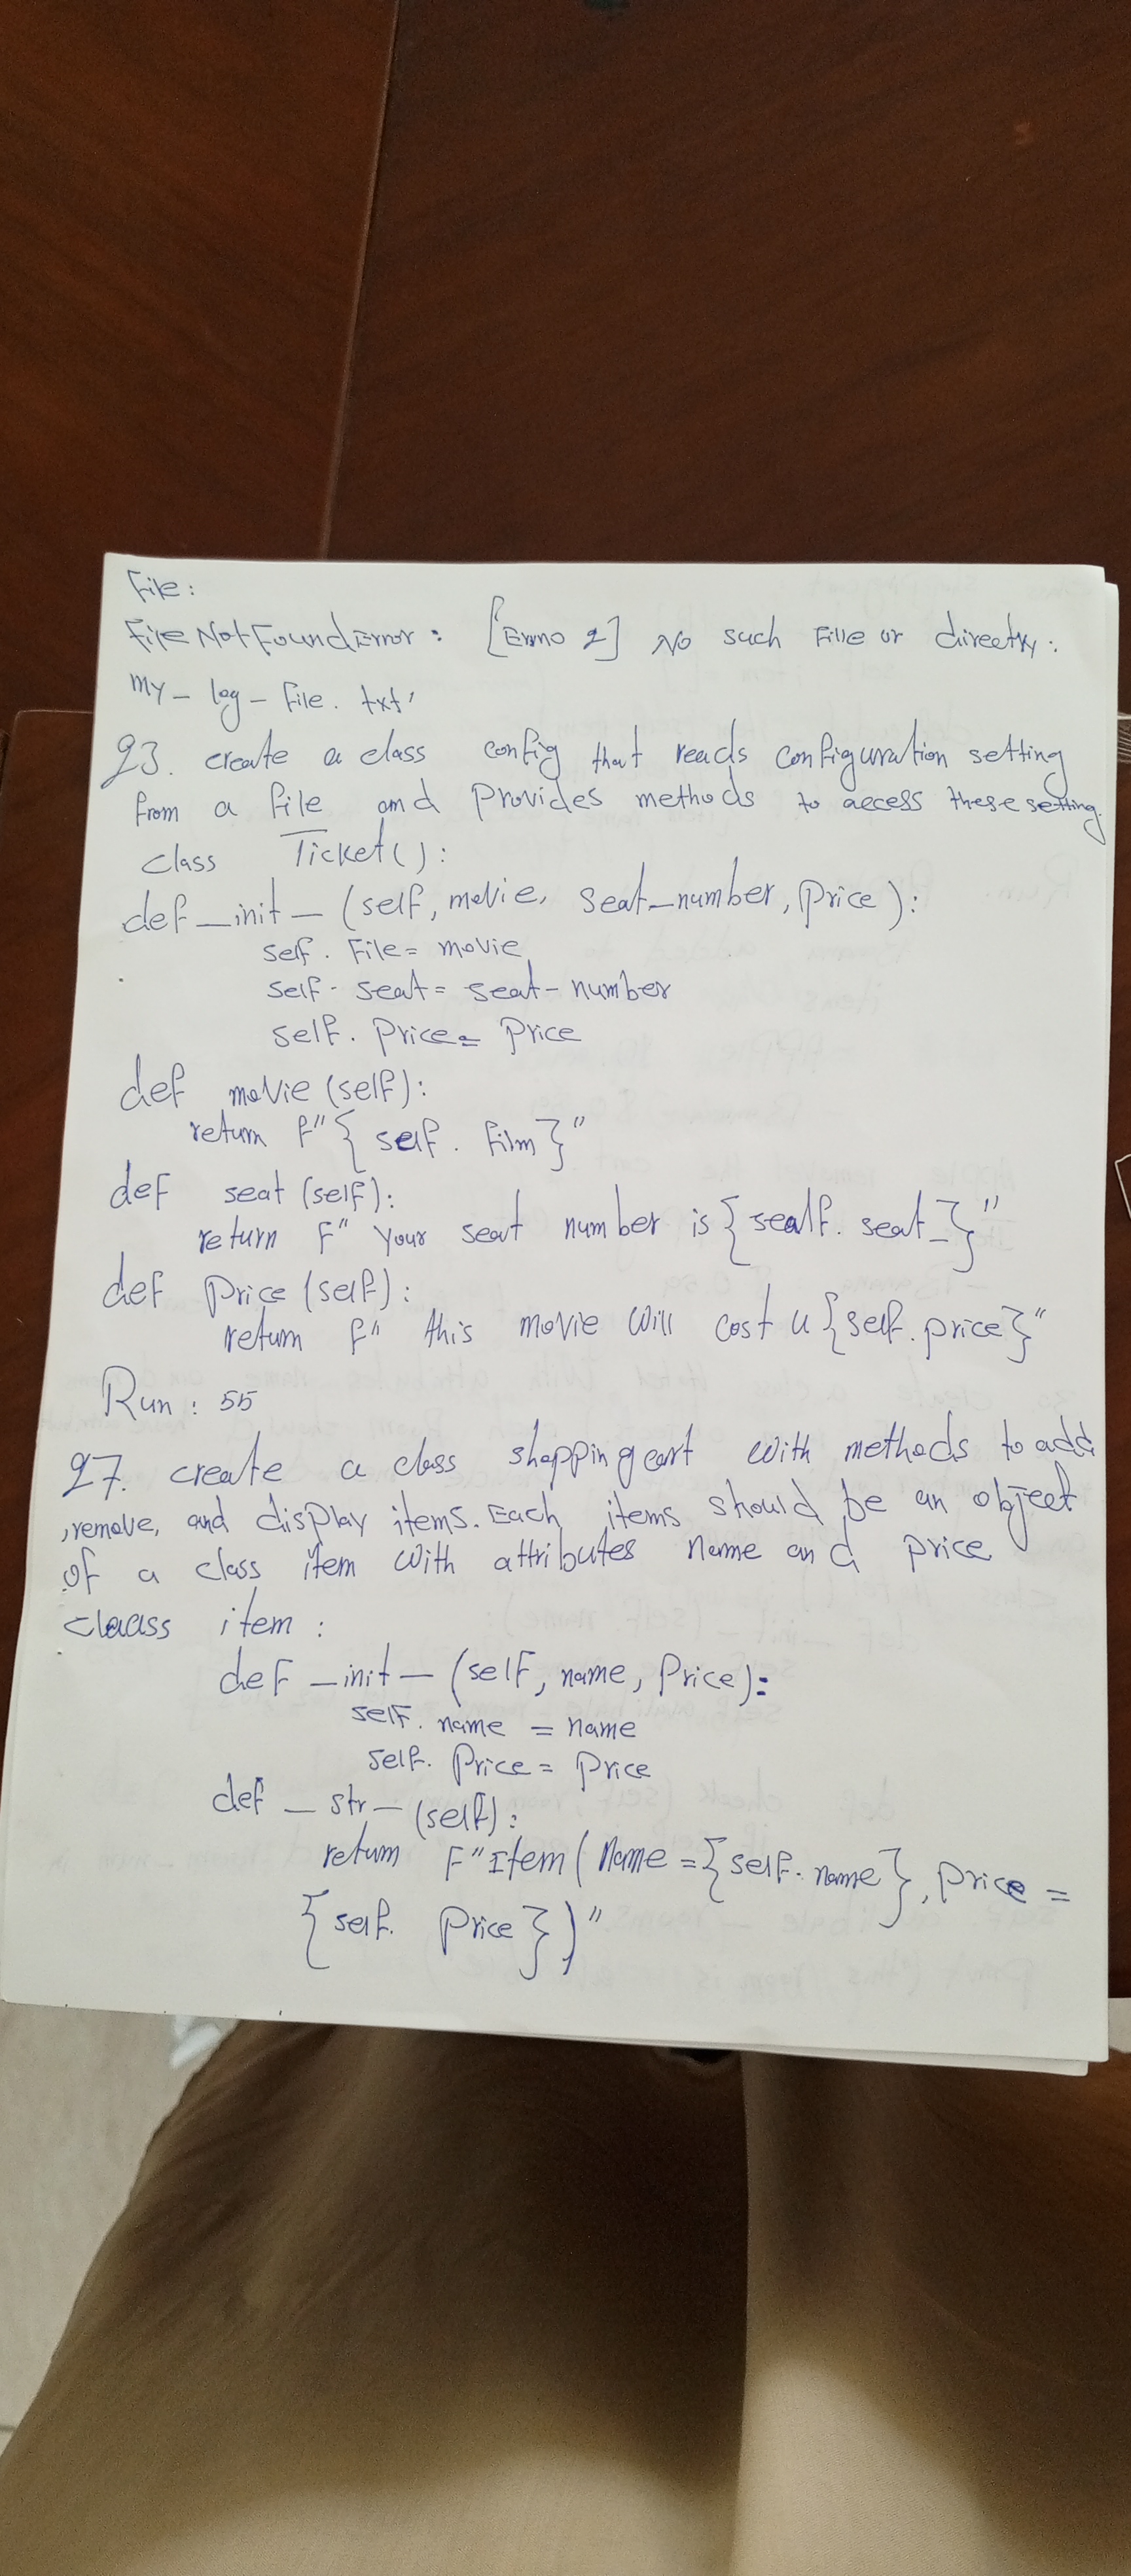 File:
FileNotFoundError: [Errno 2] No such Fille or directry:
my_log_file.txt'
23. create a class config that reads configuration setting
from a file and provides methods to access these setting.
class Ticket():
def _init_ (self, movie, seat_number, price):
self. File= movie
self. seat= seat-number
self. price= price
def movie (self):
return f"{ self. film}"
def seat (self):
return F" your seat number is {sealf. seat_}"
def price (self):
return f" this movie will cost u {self.price}"
Run: 55
27. create a class shopping cart with methods to add
,remove, and display items. Each items should be an object
of a class item with attributes name and price
claass item:
def _init_ (self, name, price):
self. name = name
self. price = price
def _ str_ (self):
return F"Item(Name={self.name}, price =
{self. price})"